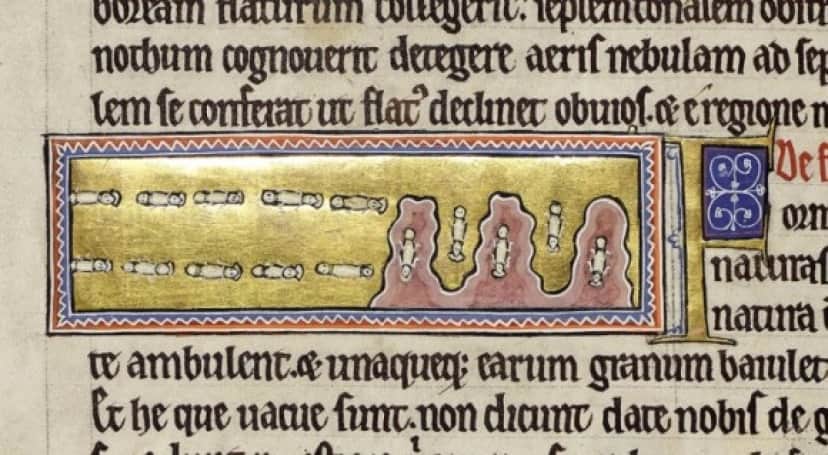 boream flaturum collegerit. septemtonalem obitu
nothum cognouerit detegere aeris nebulam ad sep
lem se conferat ut flat' declinet obuios. & e regione n
De f
orm
naturas
natura
te ambulent. & unaqueq; earum granum baiulet
Et he que uacue sunt. non dicunt date nobis de g